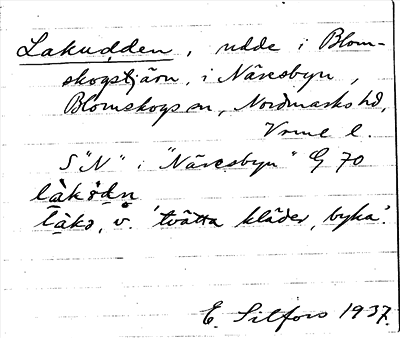 Lakudden, udde i Blom-
skogstjärn, i Näresbyn,
Blomskogs sn, Nordmarks hd,
Vrml. l.
S "N" i "Näresbyn" G 70
v. 'tvätta kläder, byka'.
E. Silfors 1937.